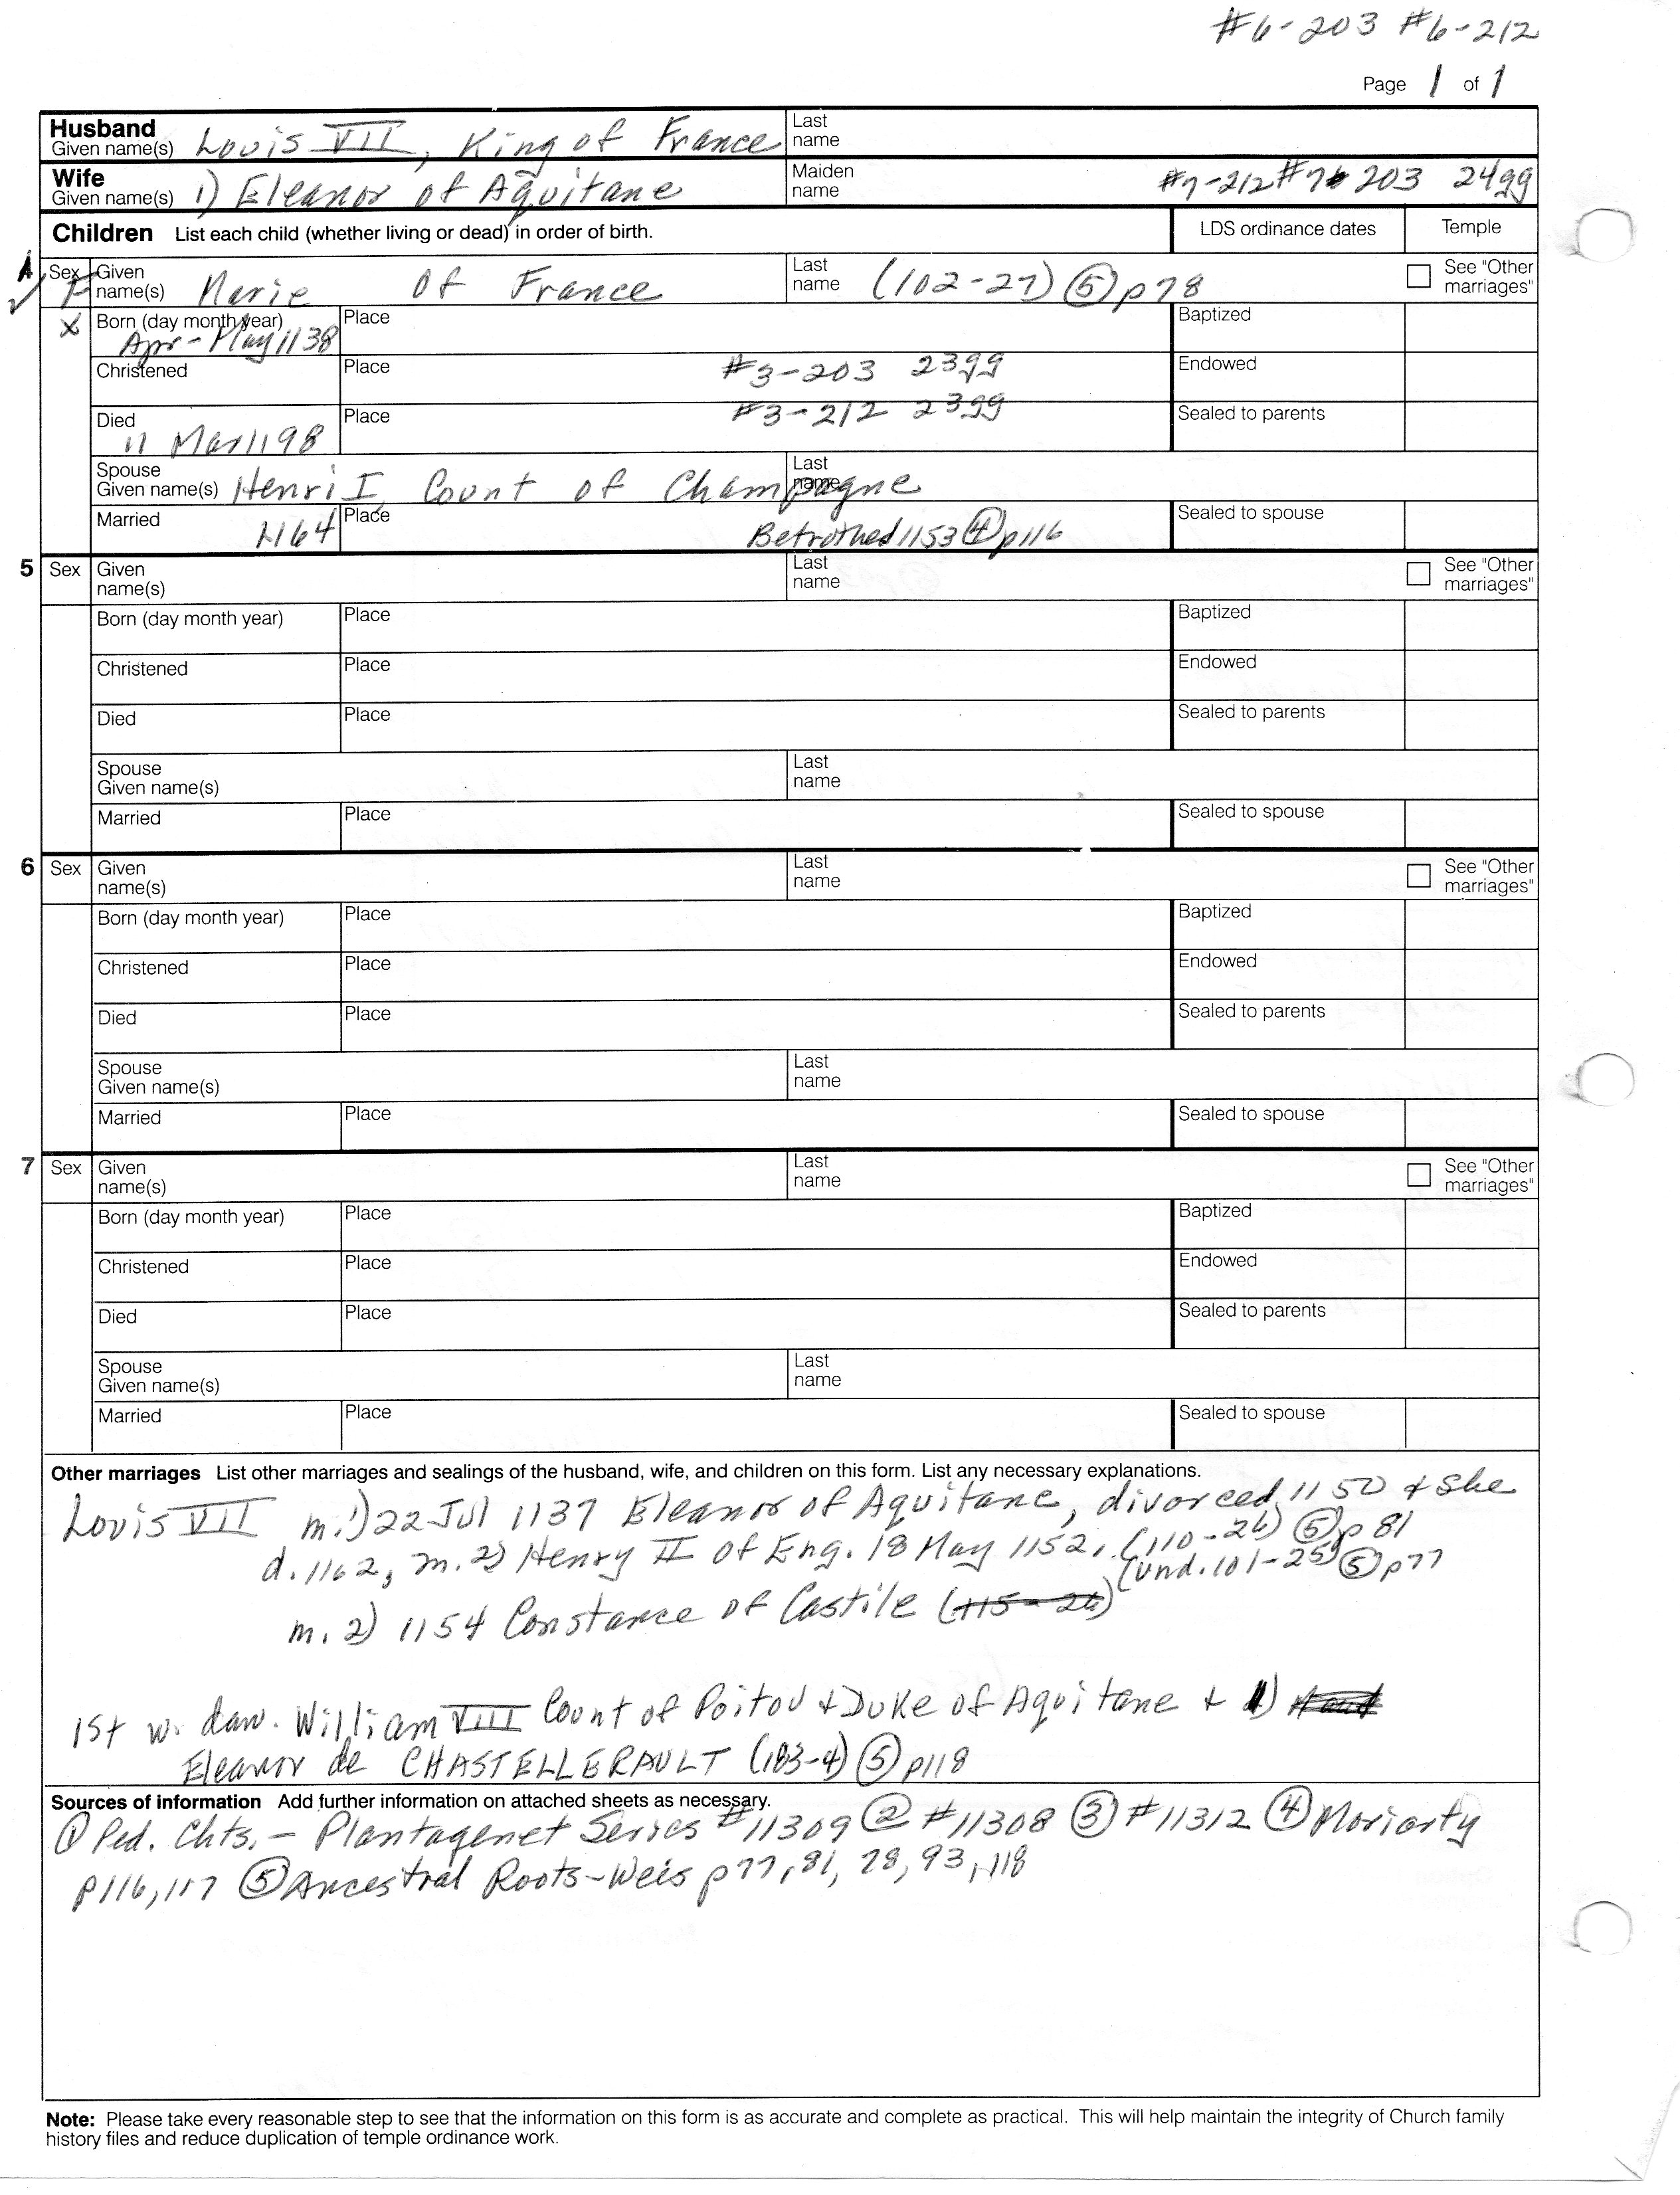 #6-203 #6-212
Page 1 of 1
Husband Given name(s) Louis VII, King of France Last name
Wife Given name(s) 1) Eleanor of Aquitane Maiden name #7-212 #7 203 24gg
Children List each child (whether living or dead) in order of birth. LDS ordinance dates Temple
Sex F Given name(s) Marie of France Last name (102-27) ⑤ p78 See "Other marriages"
X Born (day month year) Apr-May 1138 Place Baptized
Christened Place #3-203 23gg Endowed
Died 11 Mar 1198 Place #3-212 23gg Sealed to parents
Spouse Given name(s) Henri I, Count of Champagne Last name
Married 1164 Place Betrothed 1153 ④ p116 Sealed to spouse
5 Sex Given name(s) Last name See "Other marriages"
Born (day month year) Place Baptized
Christened Place Endowed
Died Place Sealed to parents
Spouse Given name(s) Last name
Married Place Sealed to spouse
6 Sex Given name(s) Last name See "Other marriages"
Born (day month year) Place Baptized
Christened Place Endowed
Died Place Sealed to parents
Spouse Given name(s) Last name
Married Place Sealed to spouse
7 Sex Given name(s) Last name See "Other marriages"
Born (day month year) Place Baptized
Christened Place Endowed
Died Place Sealed to parents
Spouse Given name(s) Last name
Married Place Sealed to spouse
Other marriages List other marriages and sealings of the husband, wife, and children on this form. List any necessary explanations.
Louis VII m. 1) 22 Jul 1137 Eleanor of Aquitane, divorced 1150 + she
d. 1162, m. 2) Henry II of Eng. 18 May 1152. (110-26) ⑤ p 81
(und. 101-25) ⑤ p77
m. 2) 1154 Constance of Castile (115-26)
1st w. dau. William VIII Count of Poitou + Duke of Aquitane + 1)
Eleanor de CHASTELLERAULT (183-4) ⑤ p118
Sources of information Add further information on attached sheets as necessary.
① Ped. Chts. - Plantagenet Series #11309 ② #11308 ③ #11312 ④ Moriarty
p116, 117 ⑤ Ancestral Roots-Weis p77, 81, 78, 93, 118
Note: Please take every reasonable step to see that the information on this form is as accurate and complete as practical. This will help maintain the integrity of Church family
history files and reduce duplication of temple ordinance work.